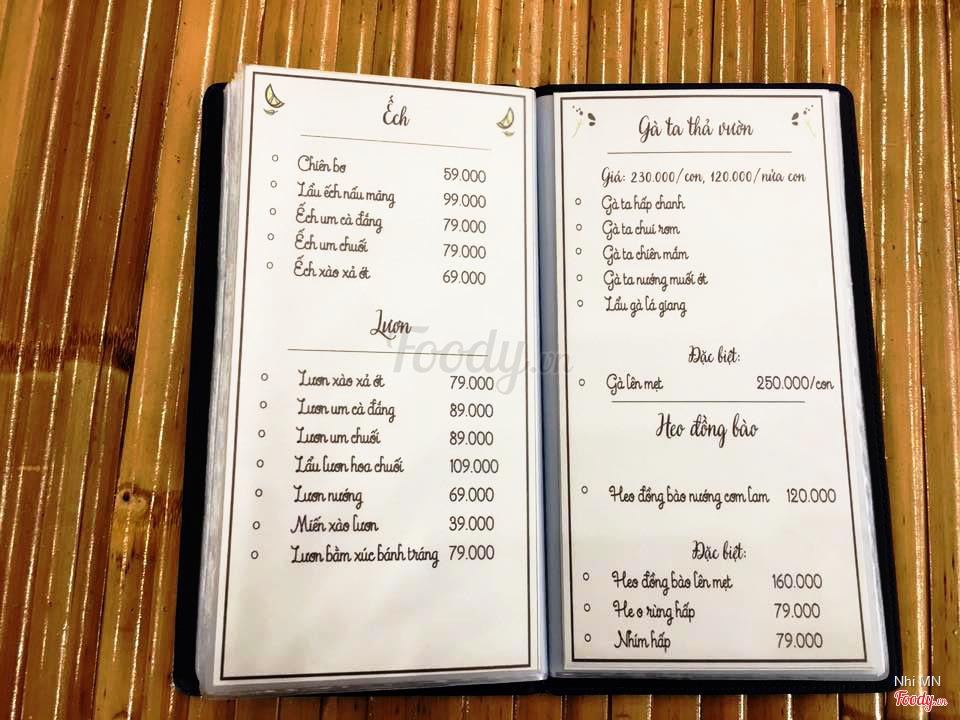 Ếch
Chiên bơ 59.000
Lẩu ếch nấu măng 99.000
Ếch um cà đắng 79.000
Ếch um chuối 79.000
Ếch xào xả ớt 69.000
Lươn
Lươn xào xả ớt 79.000
Lươn um cà đắng 89.000
Lươn um chuối 89.000
Lẩu lươn hoa chuối 109.000
Lươn nướng 69.000
Miến xào lươn 39.000
Lươn bằm xúc bánh tráng 79.000
Gà ta thả vườn
Giá: 230.000/con, 120.000/nửa con
Gà ta hấp chanh
Gà ta chui rơm
Gà ta chiên mắm
Gà ta nướng muối ớt
Lẩu gà lá giang
Đặc biệt:
Gà lên mẹt 250.000/con
Heo đồng bào
Heo đồng bào nướng cơm lam 120.000
Đặc biệt:
Heo đồng bào lên mẹt 160.000
He o rừng hấp 79.000
Nhím hấp 79.000
Foody.vn
Nhi MN
Foody.vn